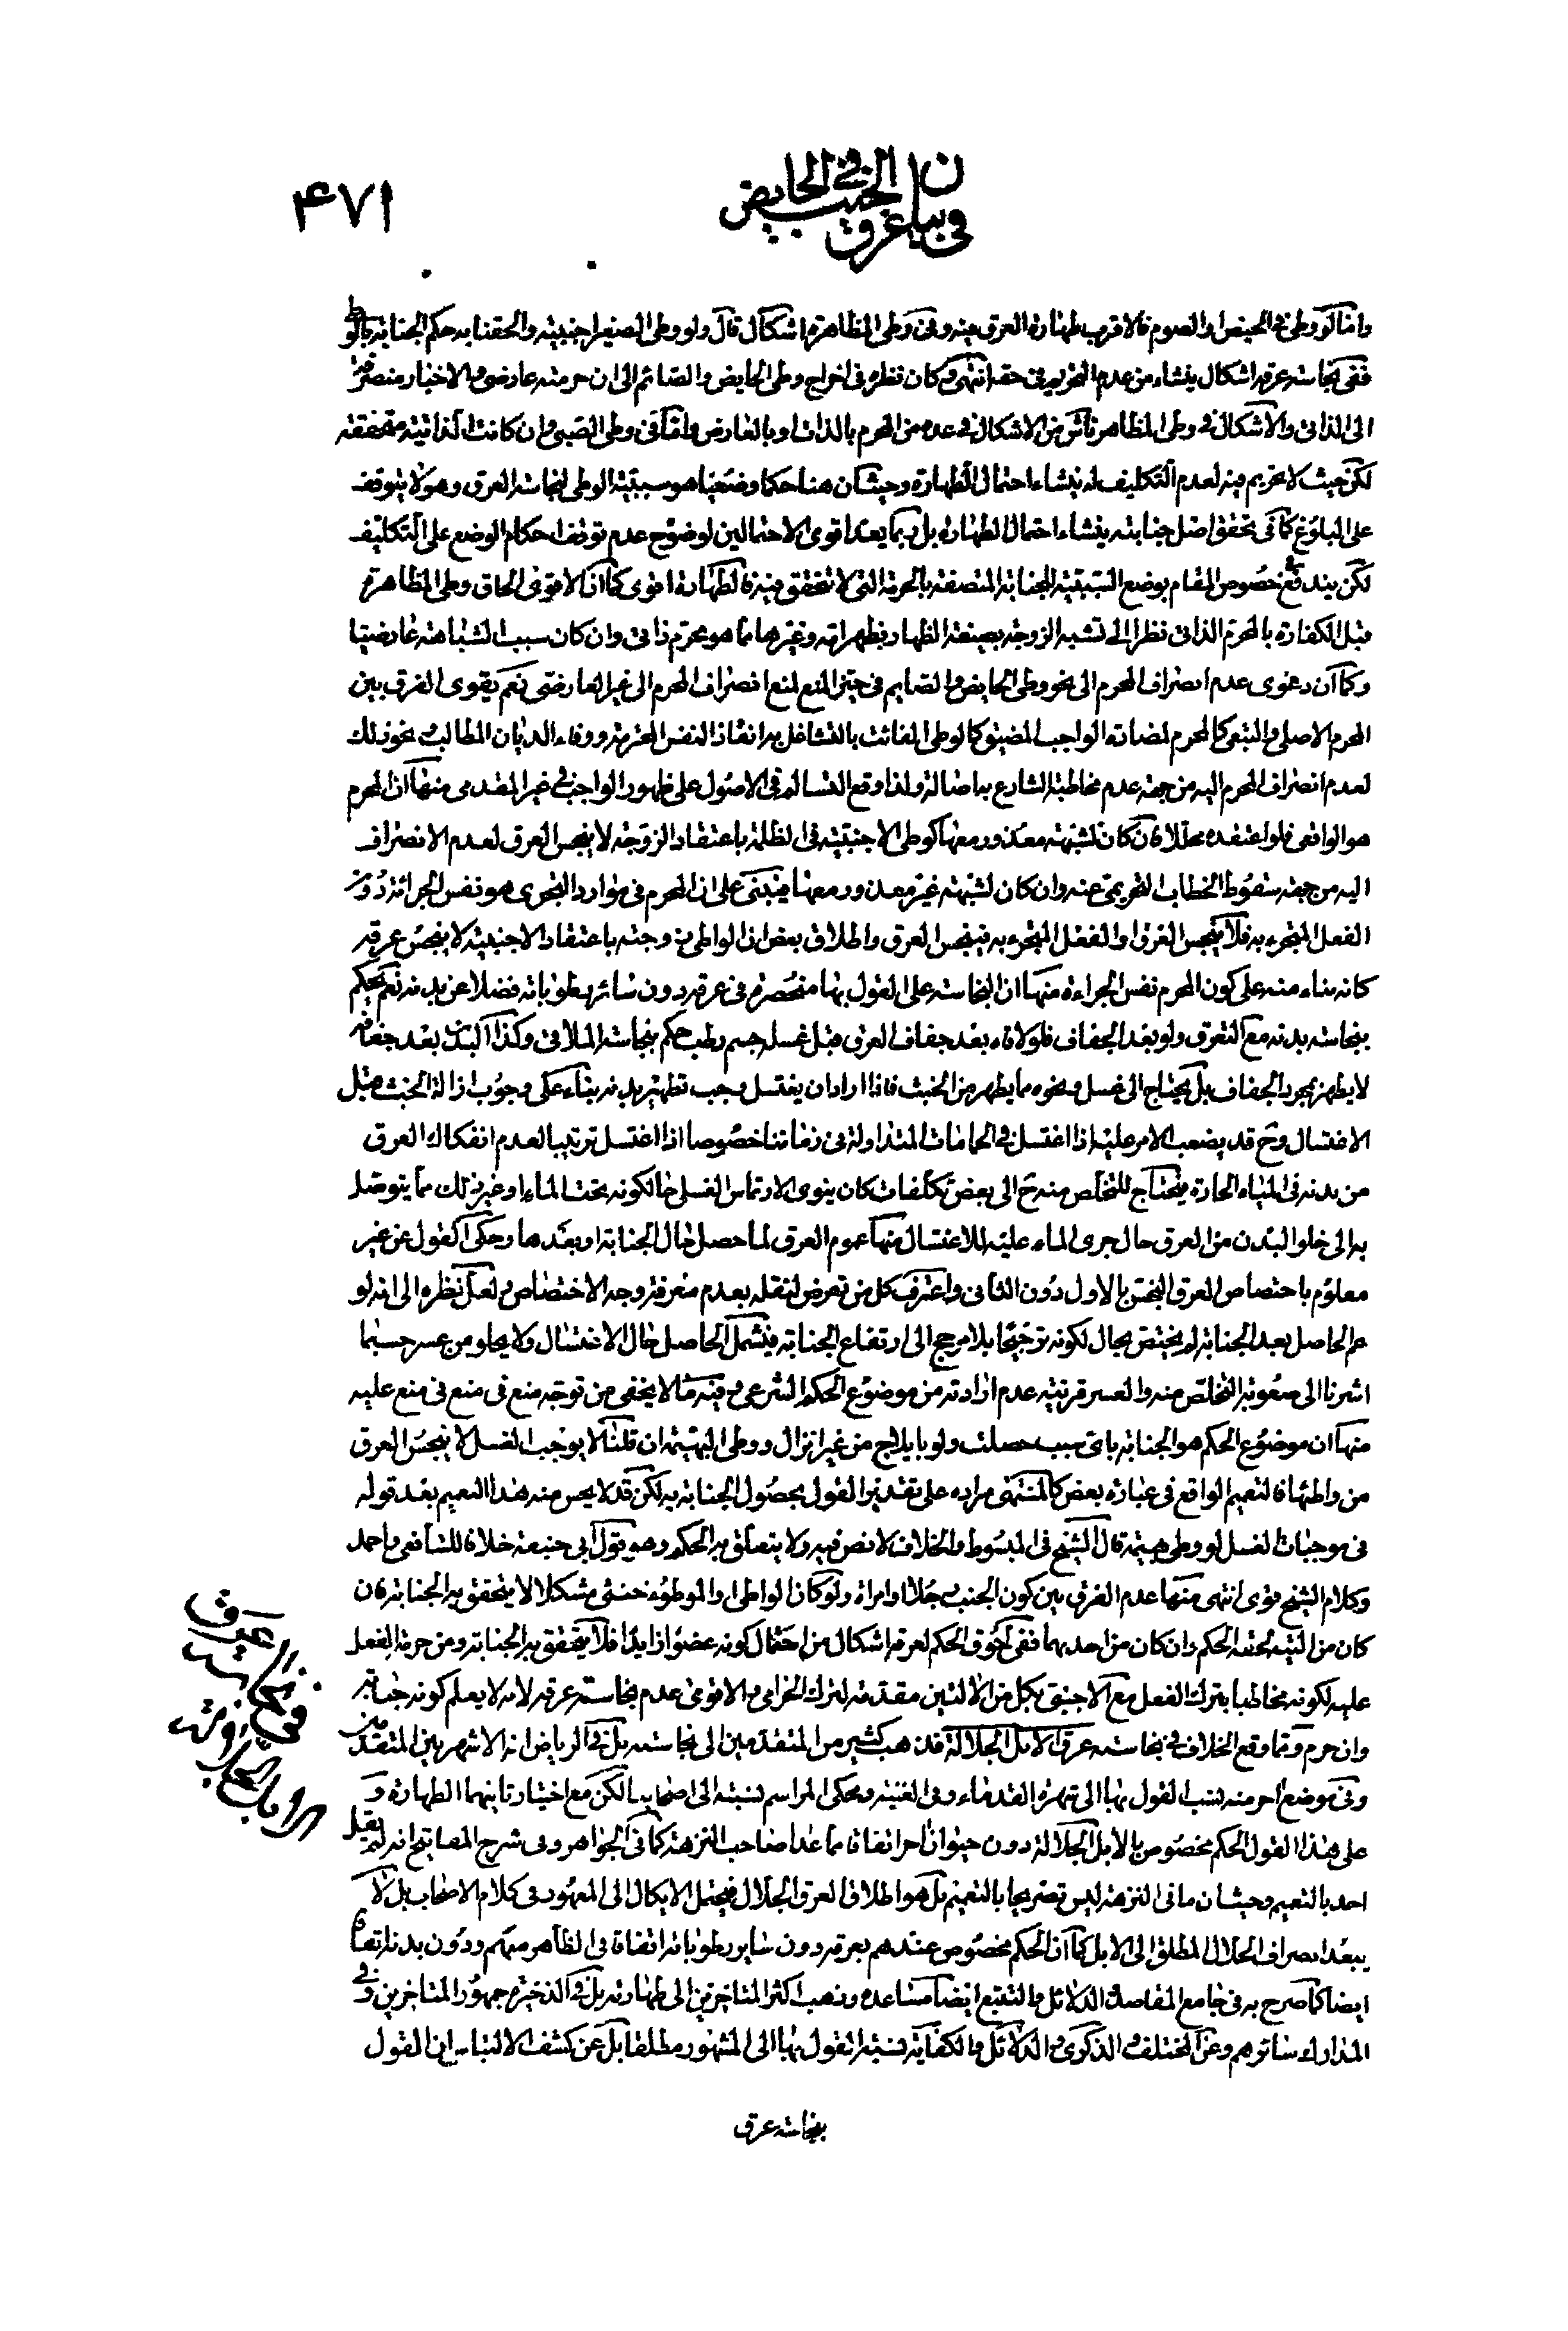 في بيان عرق الجنب في الحايض
۴۷۱
وامّا لو وطئ في الحيض او الصوم فالاقرب طهارة العرق فيه وفي وطئ المظاهرة اشكال قال ولو وطئ الصغير اجنبية والحقنا به حكم الجنابة بالوطي
ففي نجاسة عرقه اشكال ينشاء من عدم التحريم في حقه انتهى وكان نظره في اخراج وطئ الحايض والصائم الى ان حرمته عارضي والاخبار منصرفة
الى الذاتي والاشكال في وطئ المظاهر ناش من الاشكال في عده من المحرم بالذات او بالعارض وامّا في وطئ الصبي وان كانت الذاتية متحققة
لكن حيث لا تحريم فيه لعدم التكليف له ينشاء احتمال الطهارة وحيث ان هنا حكما وضعيا هو سببية الوطي لنجاسة العرق وهو لا يتوقف
على البلوغ كما في تحقق اصل جنابته ينشاء احتمال الطهارة بل ربما يعد اقوى الاحتمالين لوضوح عدم توقف احكام الوضع على التكليف
لكن يندفع في خصوص المقام بوضع السببية للجنابة المتصفة بالحرمة التي لا تتحقق فيه فالطهارة اقوى كما ان الاقوى الحاق وطئ المظاهرة
قبل الكفارة بالمحرم الذاتي نظرا الى تشبيه الزوجة بصيغة الظهار بظهر امه وغيرها مما هو محرم ذاتي وان كان سبب الشباهة عارضيا
وكما ان دعوى عدم انصراف المحرم الى نحو وطئ الحايض والصايم في حيز المنع لمنع انصراف المحرم الى غير العارضي نعم يقوى الفرق بين
المحرم الاصلي والتبعي كالمحرم لمضادة الواجب المضيق كالوطي الفائت بالتشاغل به انقاذ النفس المحترمة ووفاء الديان المطالب ونحو ذلك
لعدم انصراف المحرم اليه من جهة عدم مخاطبة الشارع به اصالة ولذا وقع التسالم في الاصول على ظهور الواجب في غير المقدمي منها ان المحرم
هو الواقعي فلو اعتقده محللا فان كان لشبهة معذور معها كوطي الاجنبية في الظلمة باعتقاد الزوجة لا ينجس العرق لعدم الانصراف
اليه من جهة سقوط الخطاب التحريمي عنه وان كان لشبهة غير معذور معها فيبنى على ان المحرم في موارد التجري هو نفس الجرائة دون
الفعل المتجرء به فلا ينجس العرق او الفعل المتجرء به فينجس العرق واطلاق بعض ان الواطئ زوجته باعتقاد الاجنبية لا ينجس عرقه
كانه بناء منه على كون المحرم نفس الجراءة منها ان النجاسة على القول بها منحصرة في عرقه دون سائر رطوباته فضلا عن بدنه نعم يحكم
بنجاسة بدنه مع التعرق ولو بعد الجفاف فلو لاقاه بعد جفاف العرق قبل غسله جسم رطب حكم بنجاسة الملاقي وكذا البدن بعد جفافه
لا يطهر بمجرد الجفاف بل يحتاج الى غسل ونحوه مما يطهر من الخبث فاذا اراد ان يغتسل وجب تطهير بدنه بناء على وجوب ازالة الخبث قبل
الاغتسال وح قد يصعب الامر عليه اذا اغتسل في الحمامات المتداولة في زماننا خصوصا اذا اغتسل ترتيبا لعدم انفكاك العرق
من بدنه في المياه الحارة فيحتاج للتخلص منه ح الى بعض تكلفات كان ينوى الارتماس الغسلي حالكونه تحت الماء او غير ذلك مما يتوصل
به الى خلو البدن من العرق حال جرى الماء عليه للاغتسال منها عموم العرق لما حصل حال الجنابة او بعدها وحكى القول عن غير
معلوم باختصاص العرق النجس بالاول دون الثاني واعترف كل من تعرض لنقله بعدم معرفة وجه الاختصاص ولعل نظره الى انه لو
عم الحاصل بعد الجنابة لم يختص بحال لكونه ترجيحا بلا مرجح الى ارتفاع الجنابة فيشمل الحاصل حال الاغتسال ولا يخلو من عسر حسبما
اشرنا الى صعوبة التخلص منه والعسر قرينة عدم ارادته من موضوع الحكم الشرعي وفيه ما لا يخفى من توجه منع في منع في منع عليه
منها ان موضوع الحكم هو الجنابة باى سبب حصلت ولو بايلاج من غير انزال ووطي البهيمة ان قلنا لا يوجب الغسل لا ينجس العرق
من واطئها فالتعميم الواقع في عبارة بعض كالمنتهى مراده على تقدير القول بحصول الجنابة به لكن قد لا يحس منه هذا التعميم بعد قوله
في موجبات الغسل لو وطئ بهيمة قال الشيخ في المبسوط والخلاف لا نص فيه ولا يتعلق به الحكم وهو قول ابى حنيفة خلافا للشافعي واحمد
وكلام الشيخ قوى انتهى منها عدم الفرق بين كون الجنب رجلا او امراة ولو كان الواطئ او الموطؤء خنثى مشكلا لا يتحقق به الجنابة فان
كان من الشبه لحقه الحكم وان كان من احدهما ففي لحوق الحكم لعرقه اشكال من احتمال كونه عضوا زايدا فلا يتحقق به الجنابة ومن حرمة الفعل
عليه لكونه مخاطبا بترك الفعل مع الاجنبي بكل من الالتين مقدمة لترك الحرام والاقوى عدم نجاسة عرقه لانه لا يعلم كونه جنابة
وان حرم ومما وقع الخلاف في نجاسته عرق الابل الجلالة فذهب كثير من المتقدمين الى نجاسته بل في الرياض انه الاشهر بين المتقدمين
وفي موضع اخر منه نسب القول بها الى شهرة القدماء وفي الغنية ومحكى المراسم نسبته الى اصحابنا لكن مع اختيار ثانيهما الطهارة و
على هذا القول الحكم مخصوص بالابل الجلالة دون حيوان اخر اتفاقا مما عدا صاحب النزهة كما في الجواهر وفي شرح المصابيح انه لم يقل
احد بالتعميم وحيث ان ما في النزهة ليس تصريحا بالتعميم بل هو اطلاق العرق الجلال فيحتمل الايكال الى المعهود في كلام الاصحاب بل لا
يبعد انصراف الجلال المطلق الى الابل كما ان الحكم مخصوص عندهم بعرقه دون ساير رطوباته اتفاقا في الظاهر منهم ودون بدنه اتفاقا
ايضا كما صرح به في جامع المقاصد والدلائل والتتبع ايضا مساعده وذهب اكثر المتاخرين الى طهارته بل في الذخيرة جمهور المتاخرين وفي
المدارك سائرهم وعن المختلف والذكرى والدلائل والكفاية نسبة القول بها الى المشهور مطلقا بل عن كشف الالتباس ان القول
في نجاسة عرق
الابل الجلالة
بنجاسة عرق